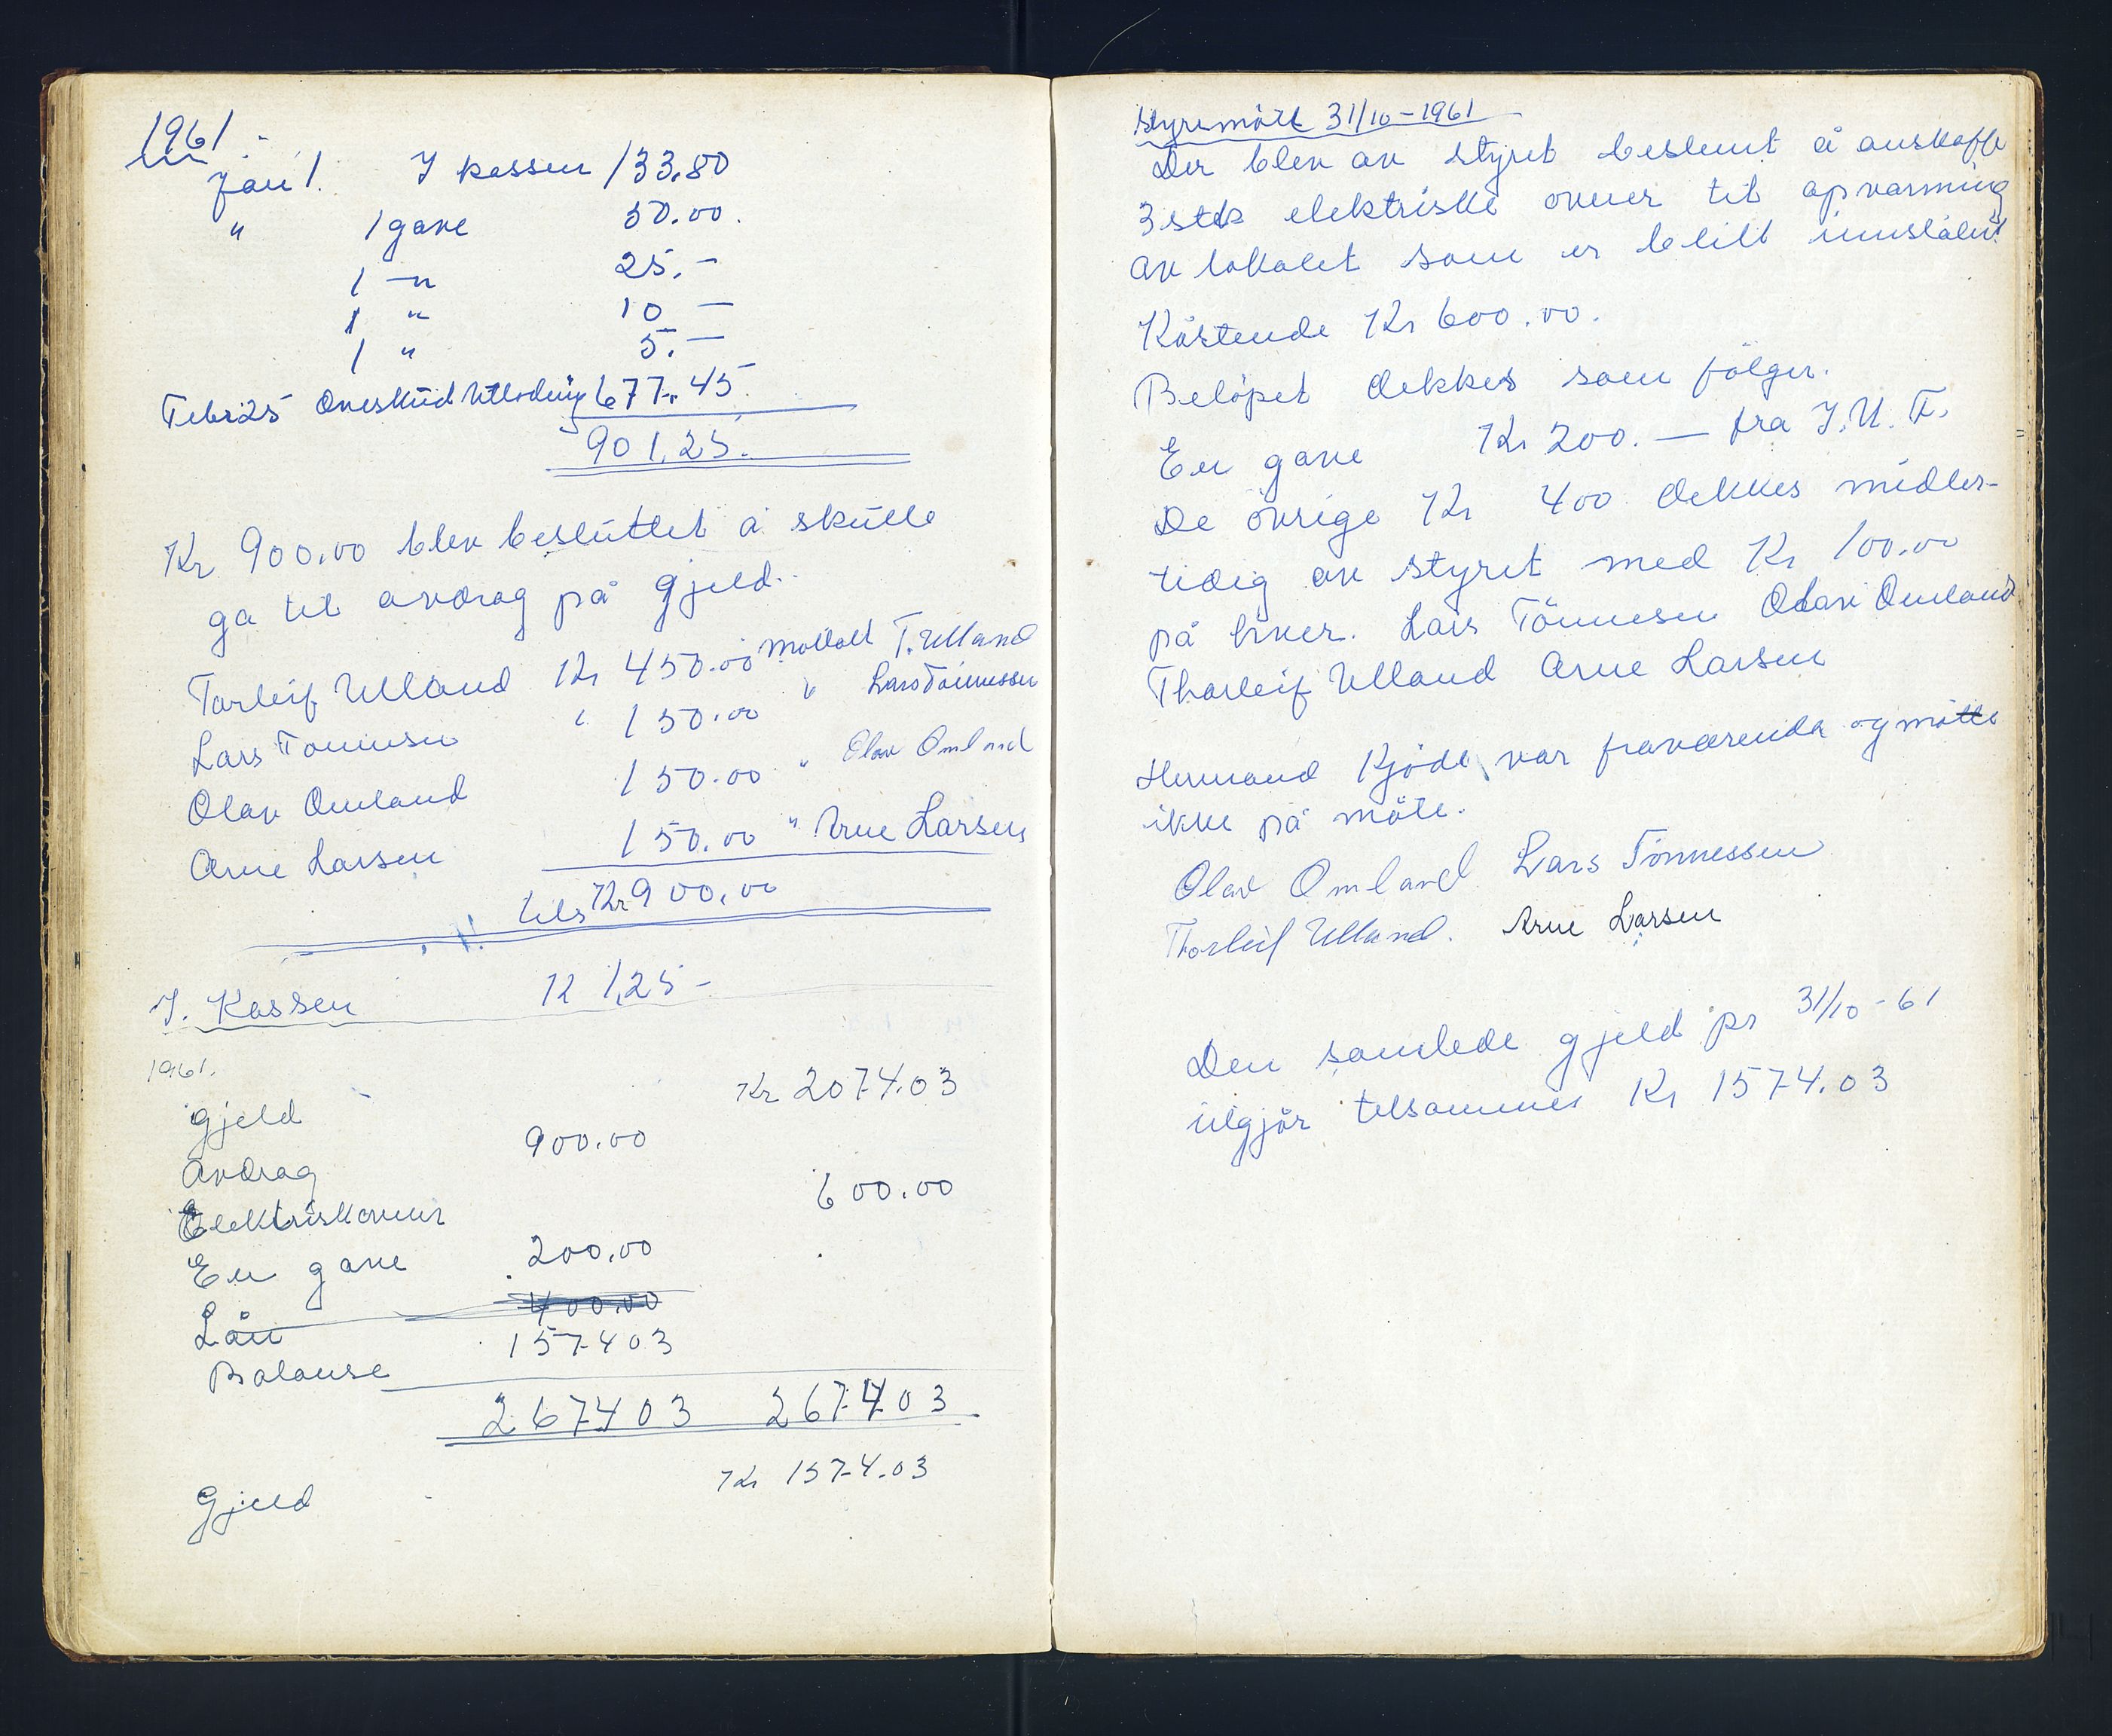 1961.
Jan 1. I kassen 133.80
" 1 gave 50.00.
1 -"- 25.-
1 " 10 -
1 " 5.-
Febr 25 Overskud Utlodning 677.45
901.25.
Kr 900.00 blev besluttet å skulle
ga til avdrag på gjeld.
Torleif Ulland Kr 450.00 Mottatt T. Ulland
Lars Tönnesen " 150.00 " Lars Tönnessen
Olav Omland 150.00 " Olav Omland
Arne Larsen 150.00 " Arne Larsen
tils Kr 900.00
I. Kassen Kr 1,25-
1961.
Gjeld Kr 2074.03
Avdrag 900.00
Elektriskovner 600.00
En gave 200.00
Lån 400.00
Balanse 1574 03
2674 03 2674 03
Gjeld Kr 1574.03
Styresmöte 31/10-1961
Der blev av styret bestemt å anskaffe
3 stk elektriske ovner til opvarming
av lokalet som er blitt innstalert
Kostende Kr 600.00.
Belöpet dekkes som fölger.
En gave Kr 200. — fra I.U.F.
De övrige Kr 400 dekkes midler-
tidig av styret med Kr 100.00
på hver. Lars Tönnesen Olav Omland
Thorleif Ulland Arne Larsen
Hermand Kjöde var fraværende og mötte
ikke på möte.
Olav Omland Lars Tönnessen
Thorleif Ulland. Arne Larsen
Den samlede gjeld pr 31/10-61
utgjör tilsammen Kr 1574.03